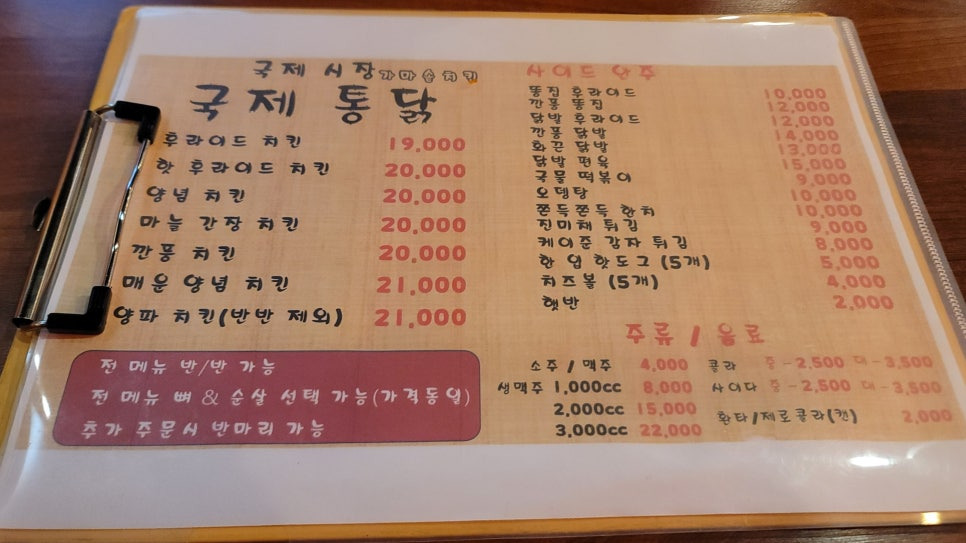 국제 시장 가마솥치킨
국제 통닭
후라이드 치킨 19,000
핫 후라이드 치킨 20,000
양념 치킨 20,000
마늘 간장 치킨 20,000
깐풍 치킨 20,000
매운 양념 치킨 21,000
양파 치킨(반반 제외) 21,000
전 메뉴 반/반 가능
전 메뉴 뼈 & 순살 선택 가능(가격동일)
추가 주문시 반마리 가능
사이드 안주
똥집 후라이드 10,000
깐풍 똥집 12,000
닭발 후라이드 12,000
깐풍 닭발 14,000
화끈 닭발 13,000
닭발 편육 15,000
국물 떡볶이 9,000
오뎅탕 10,000
쫀득쫀득 한치 10,000
진미채 튀김 9,000
케이준 감자 튀김 8,000
한 입 핫도그 (5개) 5,000
치즈볼 (5개) 4,000
햇반 2,000
주류 / 음료
소주 / 맥주 4,000
생맥주 1,000cc 8,000
2,000cc 15,000
3,000cc 22,000
콜라 중-2,500 대-3,500
사이다 중-2,500 대-3,500
환타/제로콜라(캔) 2,000